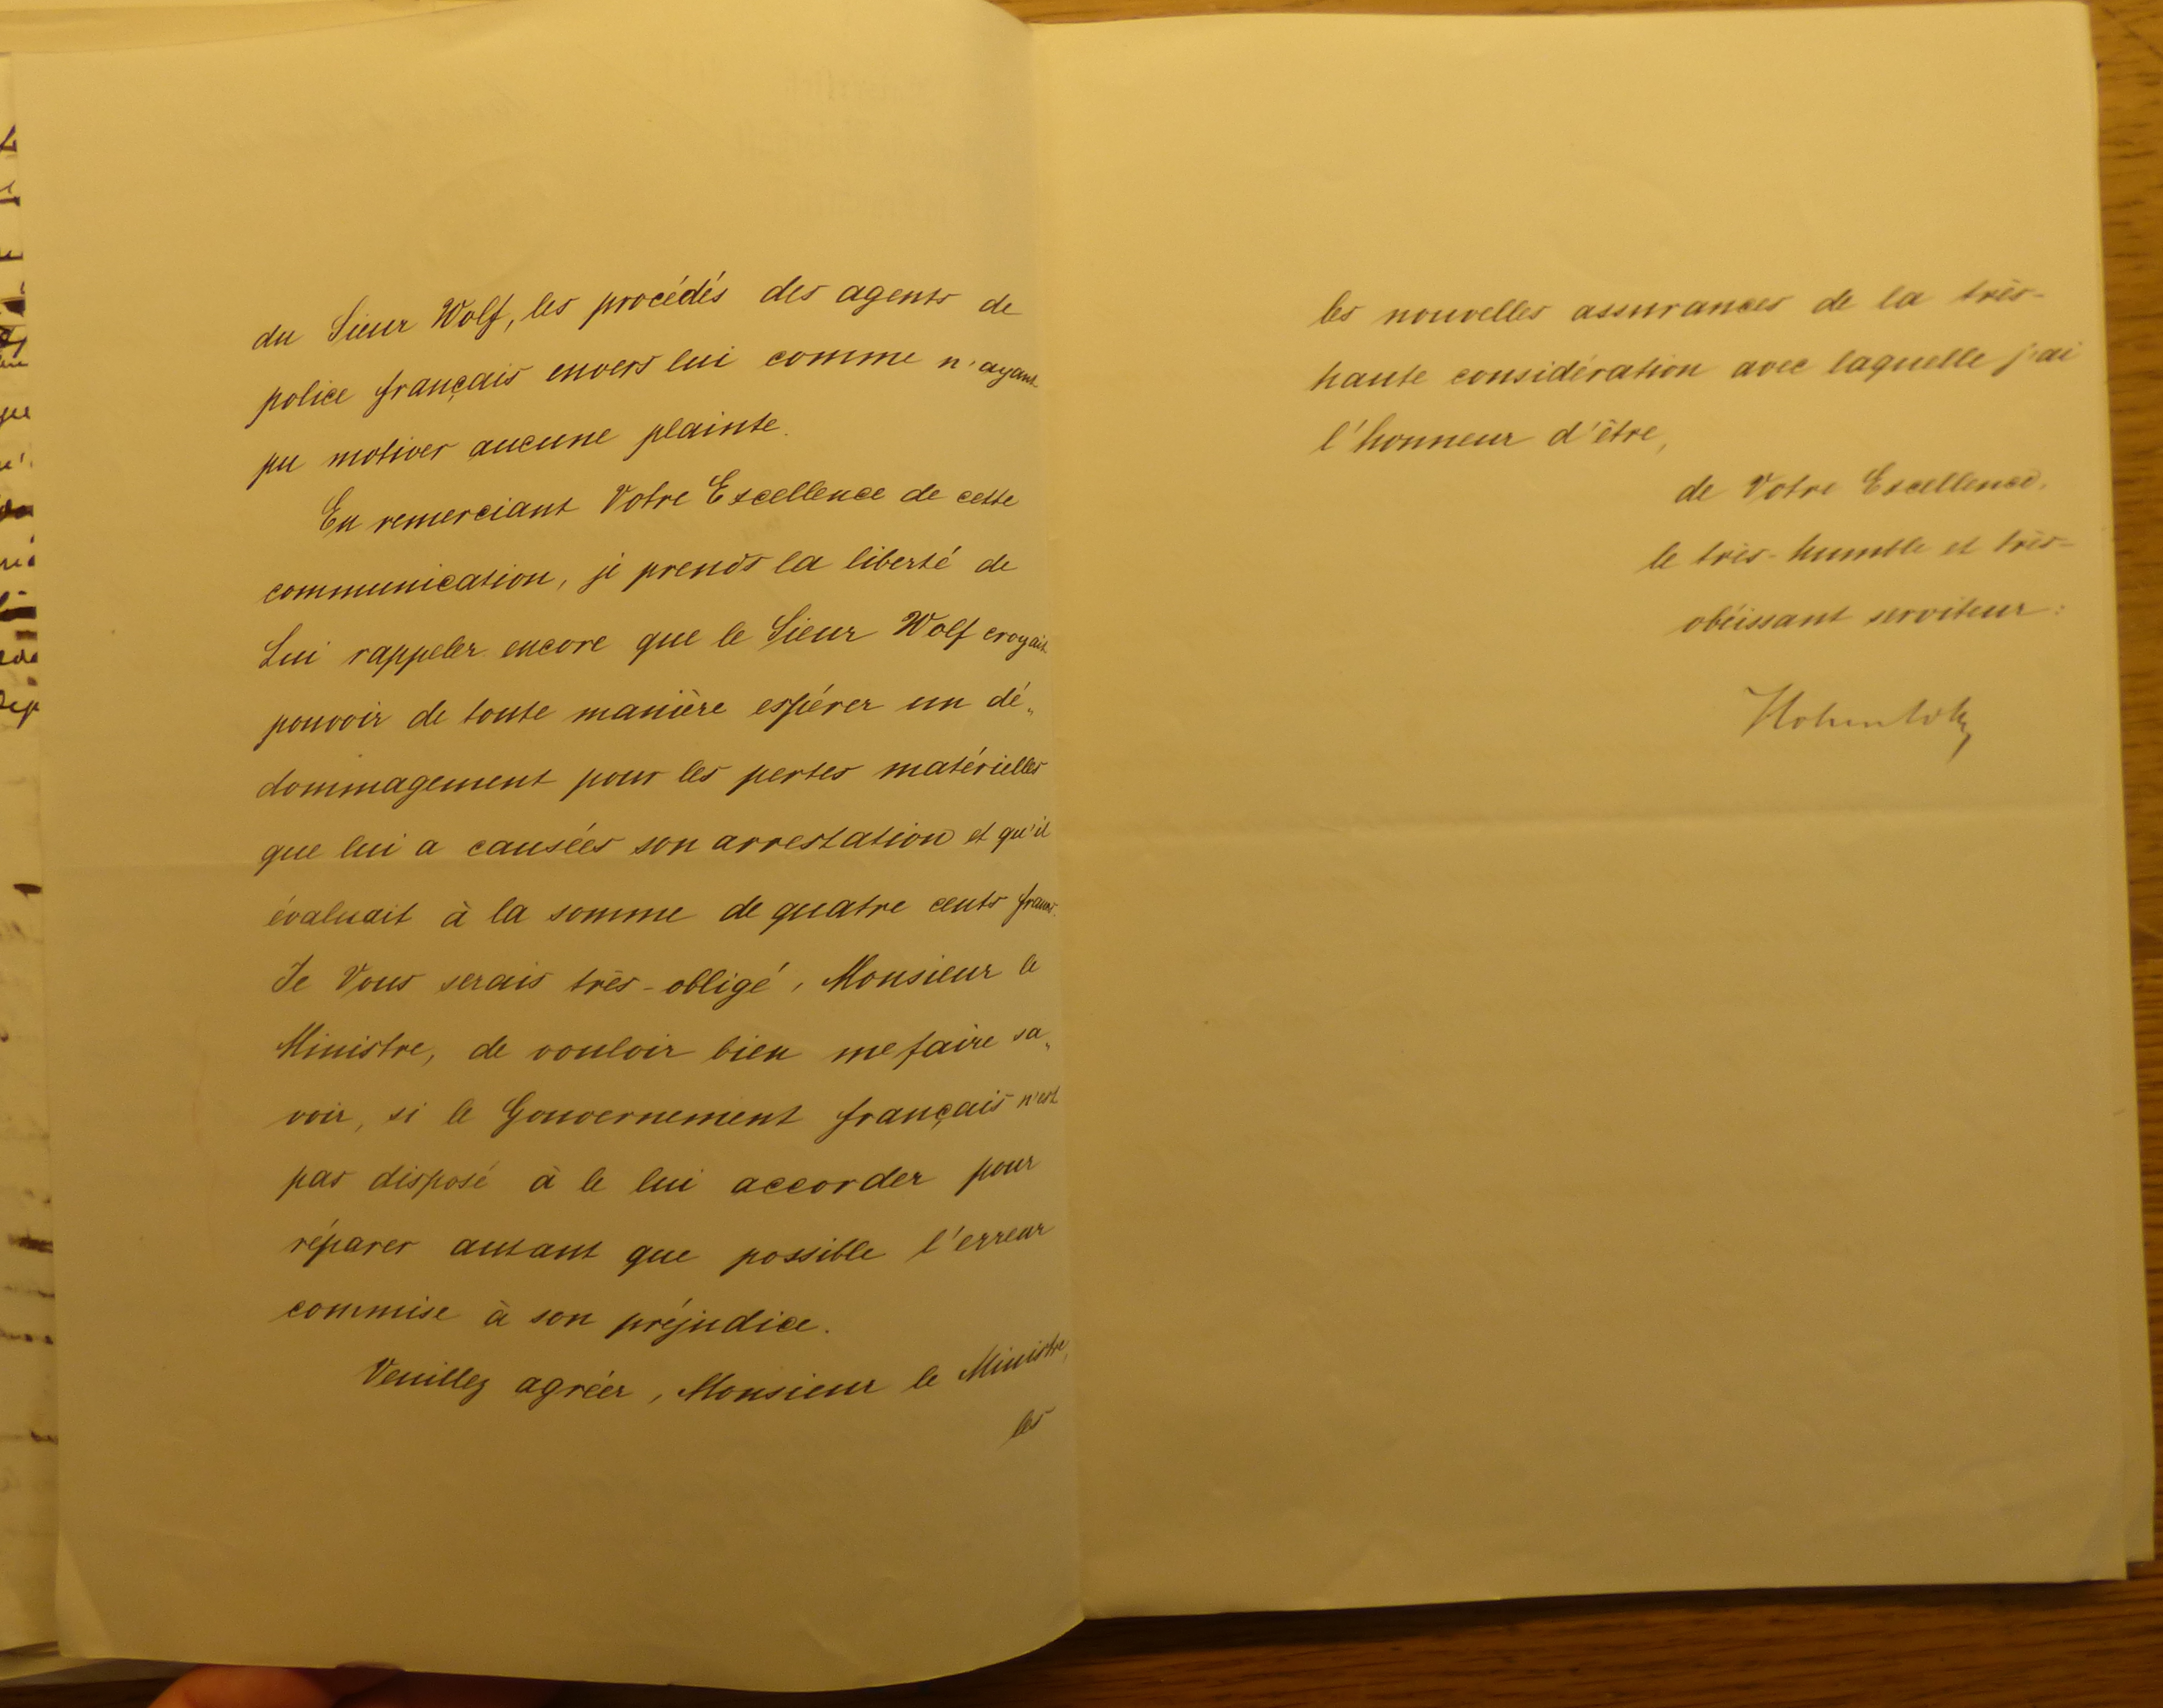 du Sieur Wolf, les procédés des agents de
police français envers lui comme n'ayant
pu motiver aucune plainte.
En remerciant Votre Excellence de cette
communication, je prends la liberté de
Lui rappeler encore que le Sieur Wolf croyait
pouvoir de toute manière espérer un dé„
dommagement pour les pertes matérielles
que lui a causées son arrestation et qu'il
évaluait à la somme de quatre cents francs.
Je Vous serais très-obligé, Monsieur le
Ministre, de vouloir bien me faire sa„
voir, si le Gouvernement français n'est
pas disposé à le lui accorder pour
réparer autant que possible l'erreur
commise à son préjudice.
Veuillez agréer, Monsieur le Ministre,
les
les nouvelles assurances de la très-
haute considération avec laquelle j'ai
l'honneur d'être,
de Votre Excellence,
le très-humble et très-
obéissant serviteur:
Hohenlohe